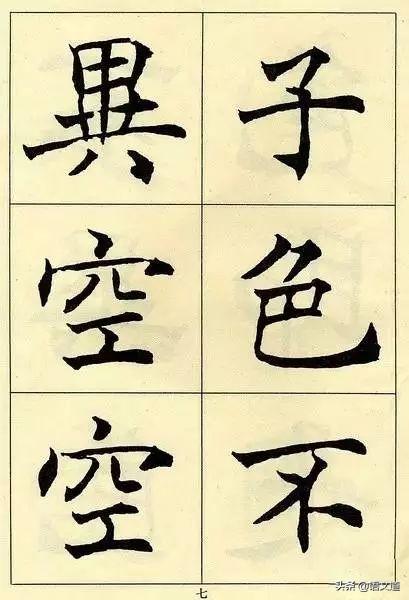 子色不
異空空
七
头条 @语文道